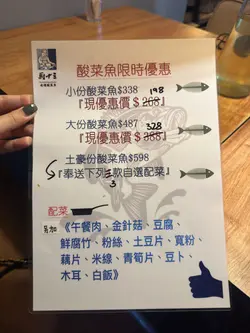 酸菜魚限時優惠
小份酸菜魚$338 198
『現優惠價$268』
大份酸菜魚$487 328
『現優惠價$388』
土豪份酸菜魚$598
『奉送下列3款自選配菜』
配菜
另加《午餐肉、金針菇、豆腐、
鮮腐竹、粉絲、土豆片、寬粉、
藕片、米線、青筍片、豆卜、
木耳、白飯》